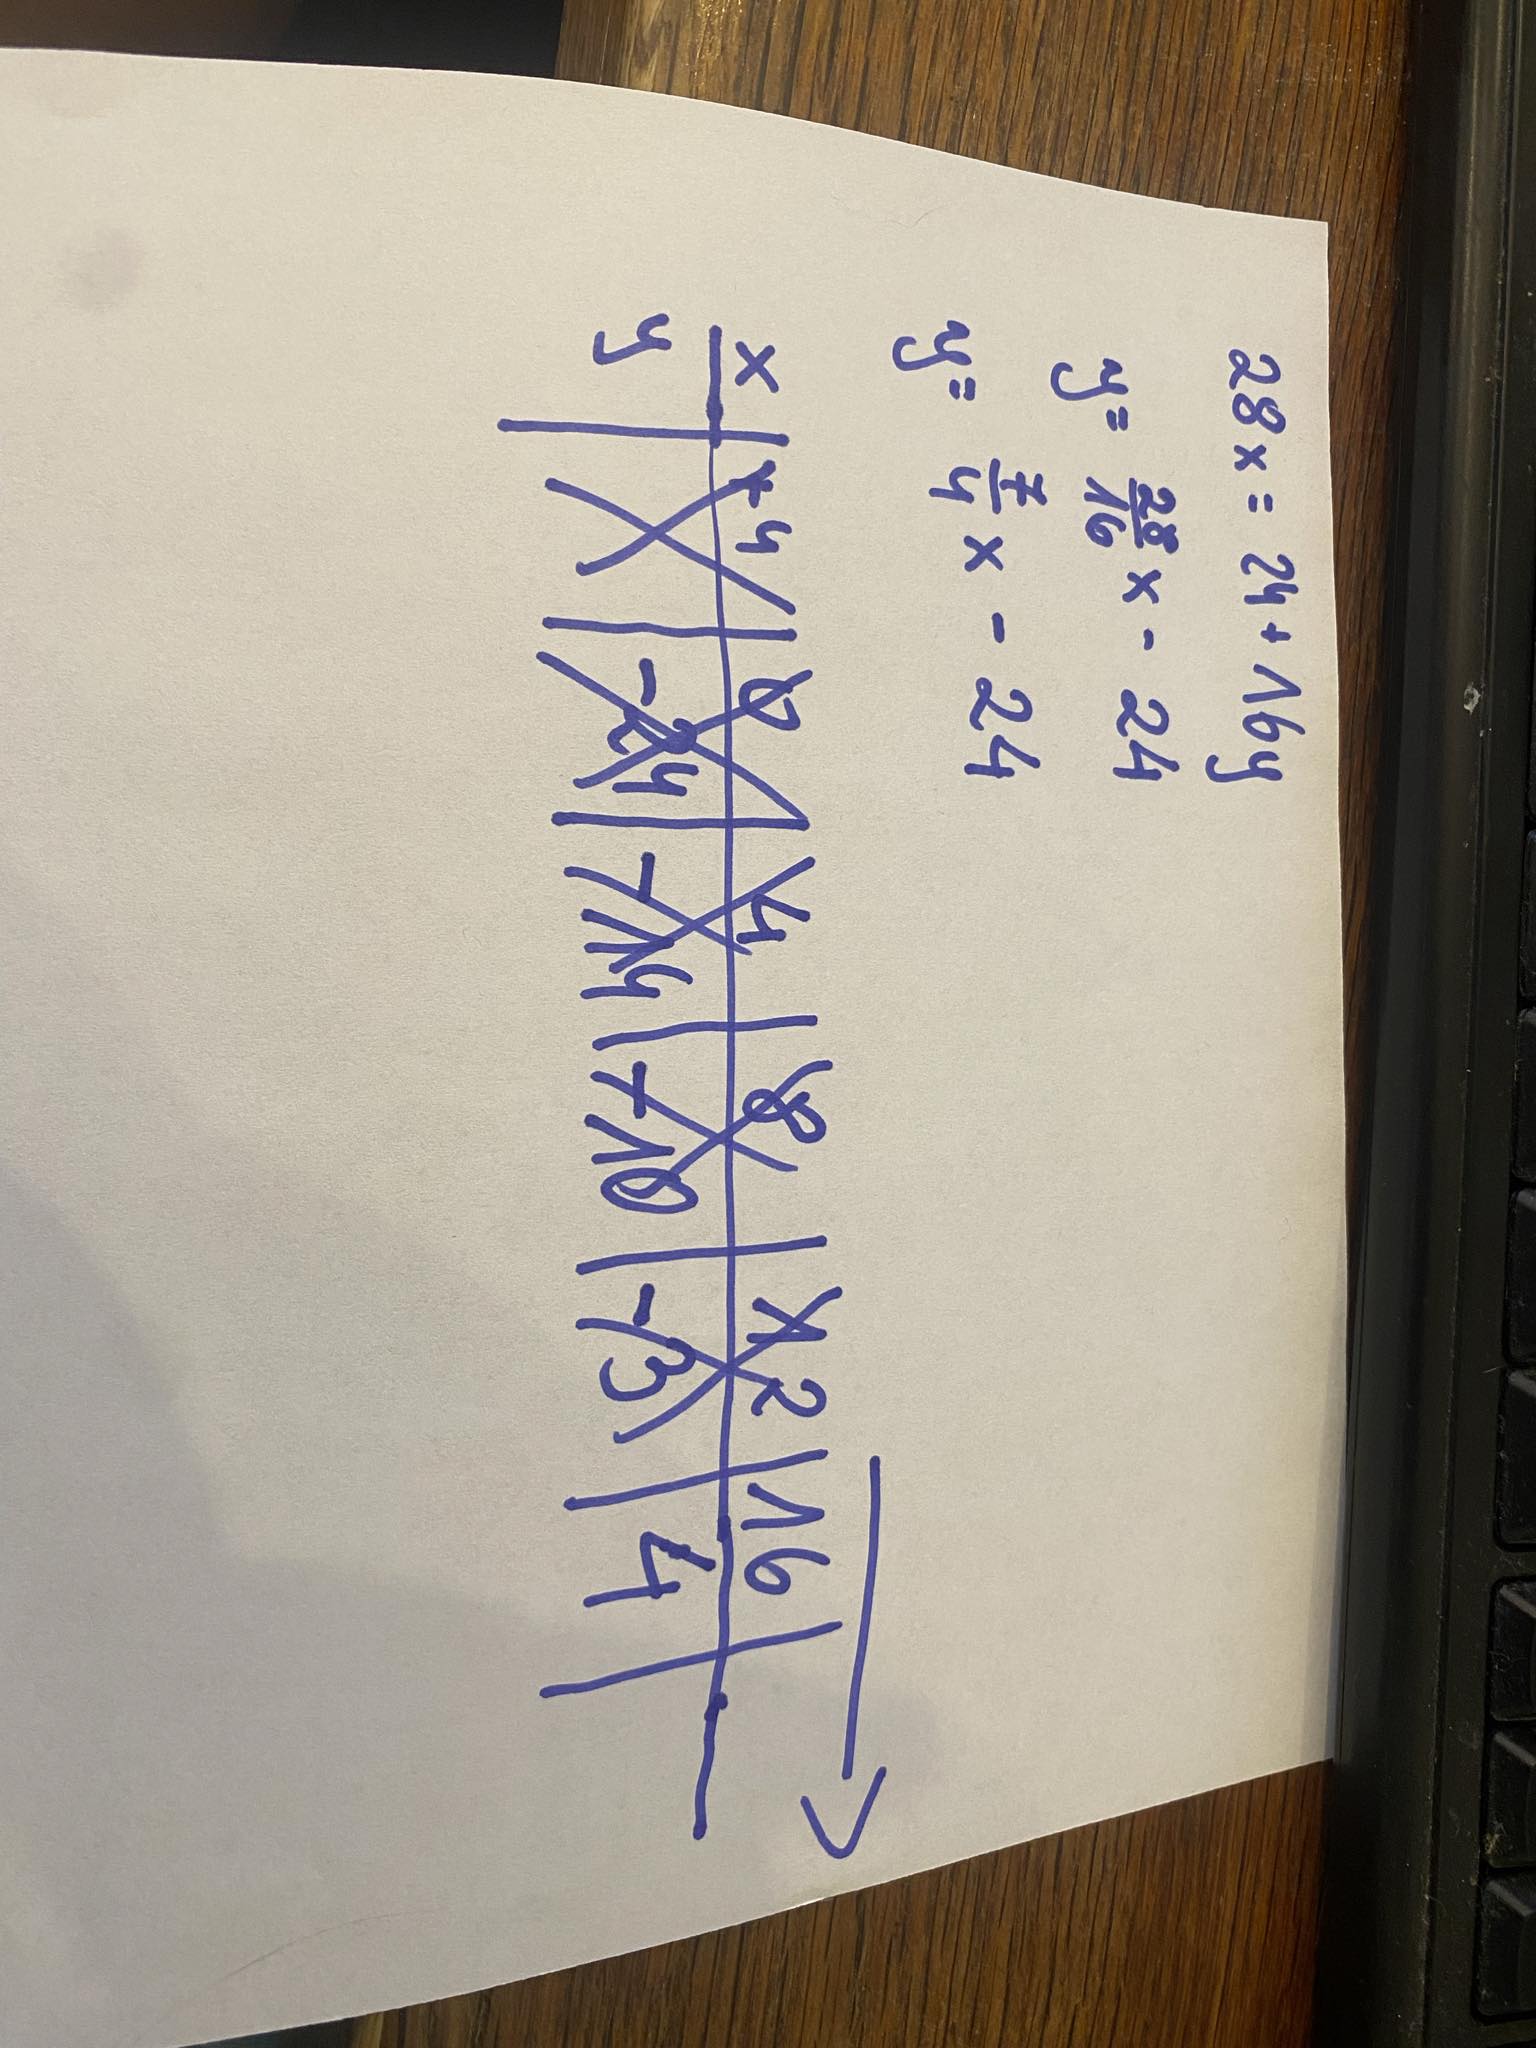 28x = 24 + 16y
y = 28/16 x - 24
y = 7/4 x - 24
x | -4 | 0 | 4 | 8 | 12 | 16 |
y | | -24 | -14 | -10 | -3 | 4 |